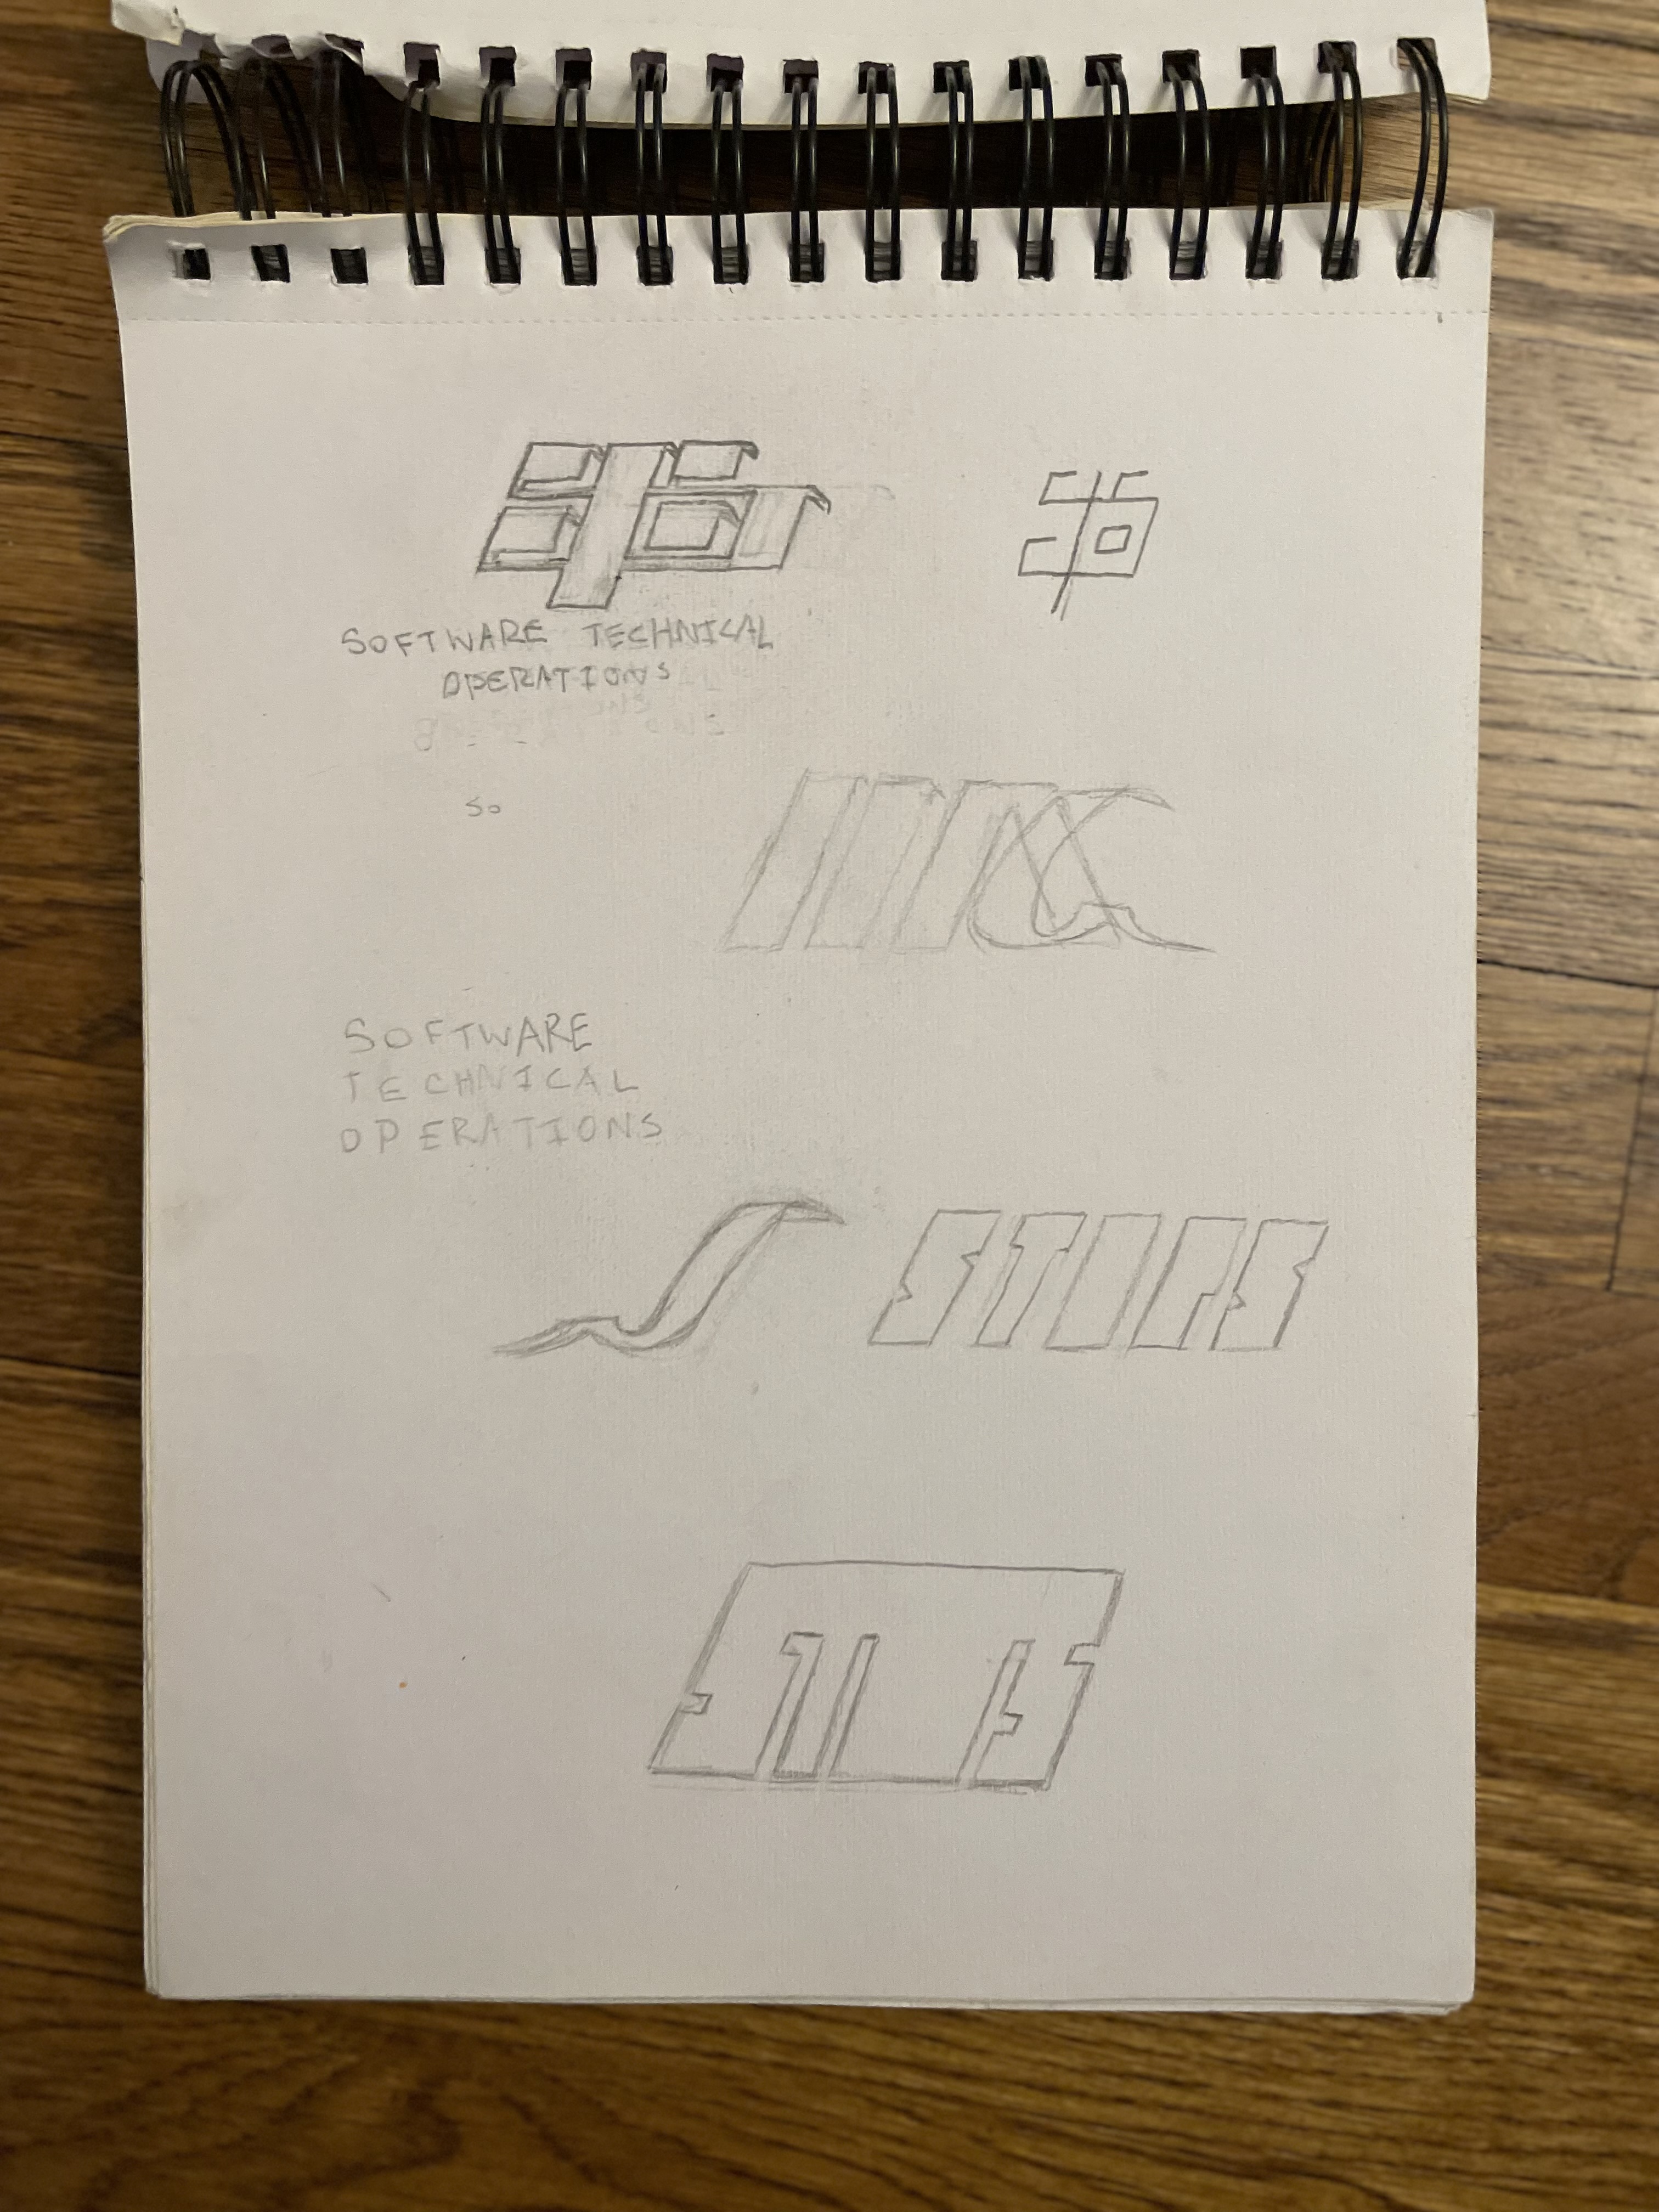 SOFTWARE TECHNICAL
OPERATIONS
So
SOFTWARE
TECHNICAL
OPERATIONS
STOPS